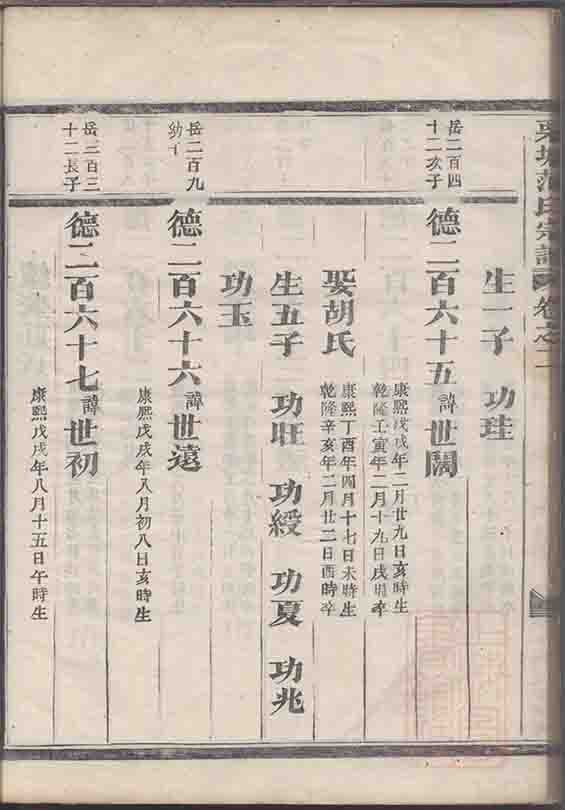 氏宗譜 卷之二
生一子 功珪
岳二百四
十二次子
德二百六十五諱世闊
康熙戊戌年二月廿九日亥時生
乾隆壬寅年二月十九日戌時卒
娶胡氏
康熙丁酉年四月十七日未時生
乾隆辛亥年二月廿二日酉時卒
生五子 功旺 功綬 功夏 功兆
功玉
岳二百九
幼子
德二百六十六諱世遠
康熙戊戌年八月初八日亥時生
岳三百三
十二長子
德二百六十七諱世初
康熙戊戌年八月十五日午時生